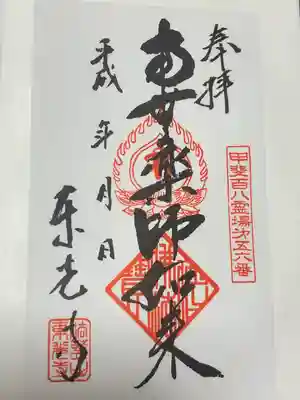 奉拝
甲斐百八霊場第五六番
南無薬師如来
平成　年　月　日
東光寺